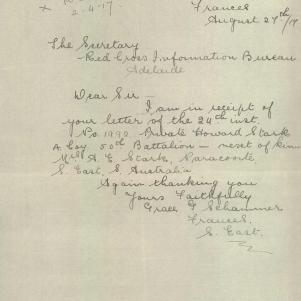 Frances
August 27th/17
x
2-4-17.
The Secretary
Red Cross Information Bureau
Adelaide
Dear Sir -
I am in receipt of
your letter of the 24th inst.
No. 1992 Private Howard Stark
A Coy 50th Battalion - next of kin
A. E. Stark, Naracoorte,
S. East, S. Australia
Again thanking you
Yours Faithfully
Grace F Schammer
Frances,
S. East.